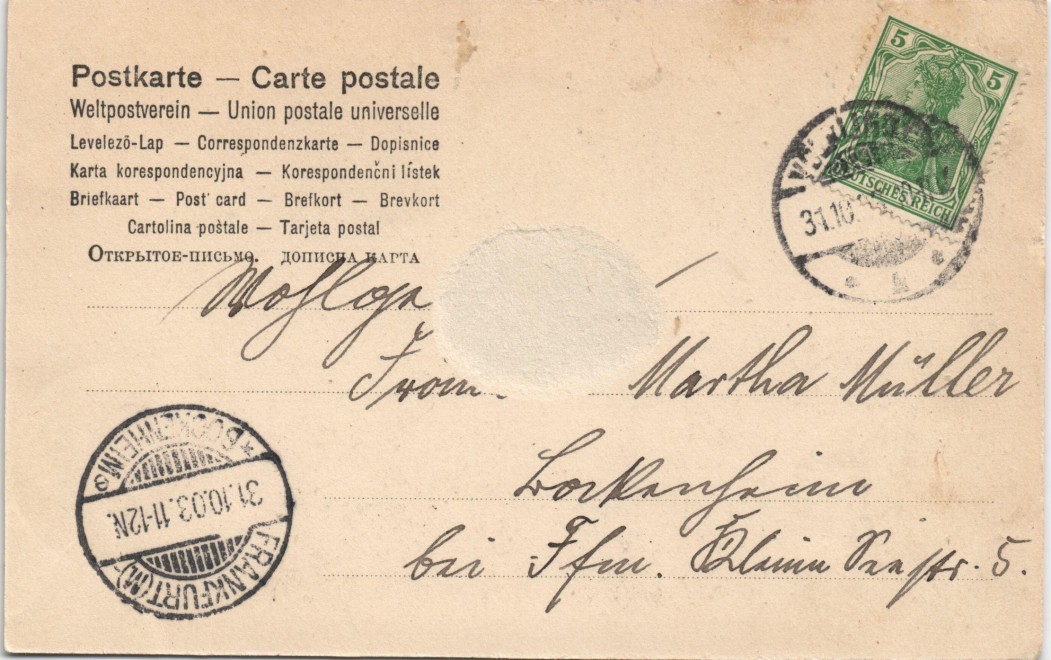 Postkarte — Carte postale
Weltpostverein — Union postale universelle
Levelező-Lap — Correspondenzkarte — Dopisnice
Karta korespondencyjna — Korespondenčni listek
Briefkaart — Post card — Brefkort — Brevkort
Cartolina postale — Tarjeta postal
Открытое-письмо. дописна карта
5 5
DEUTSCHES REICH
31.10.
Wohlge
Martha Müller
Bockenheim
bei Ffm. Kleine Seestr. 5.
* BOCKENHEIM
31.10.03. 11-12N.
FRANKFURT (M)